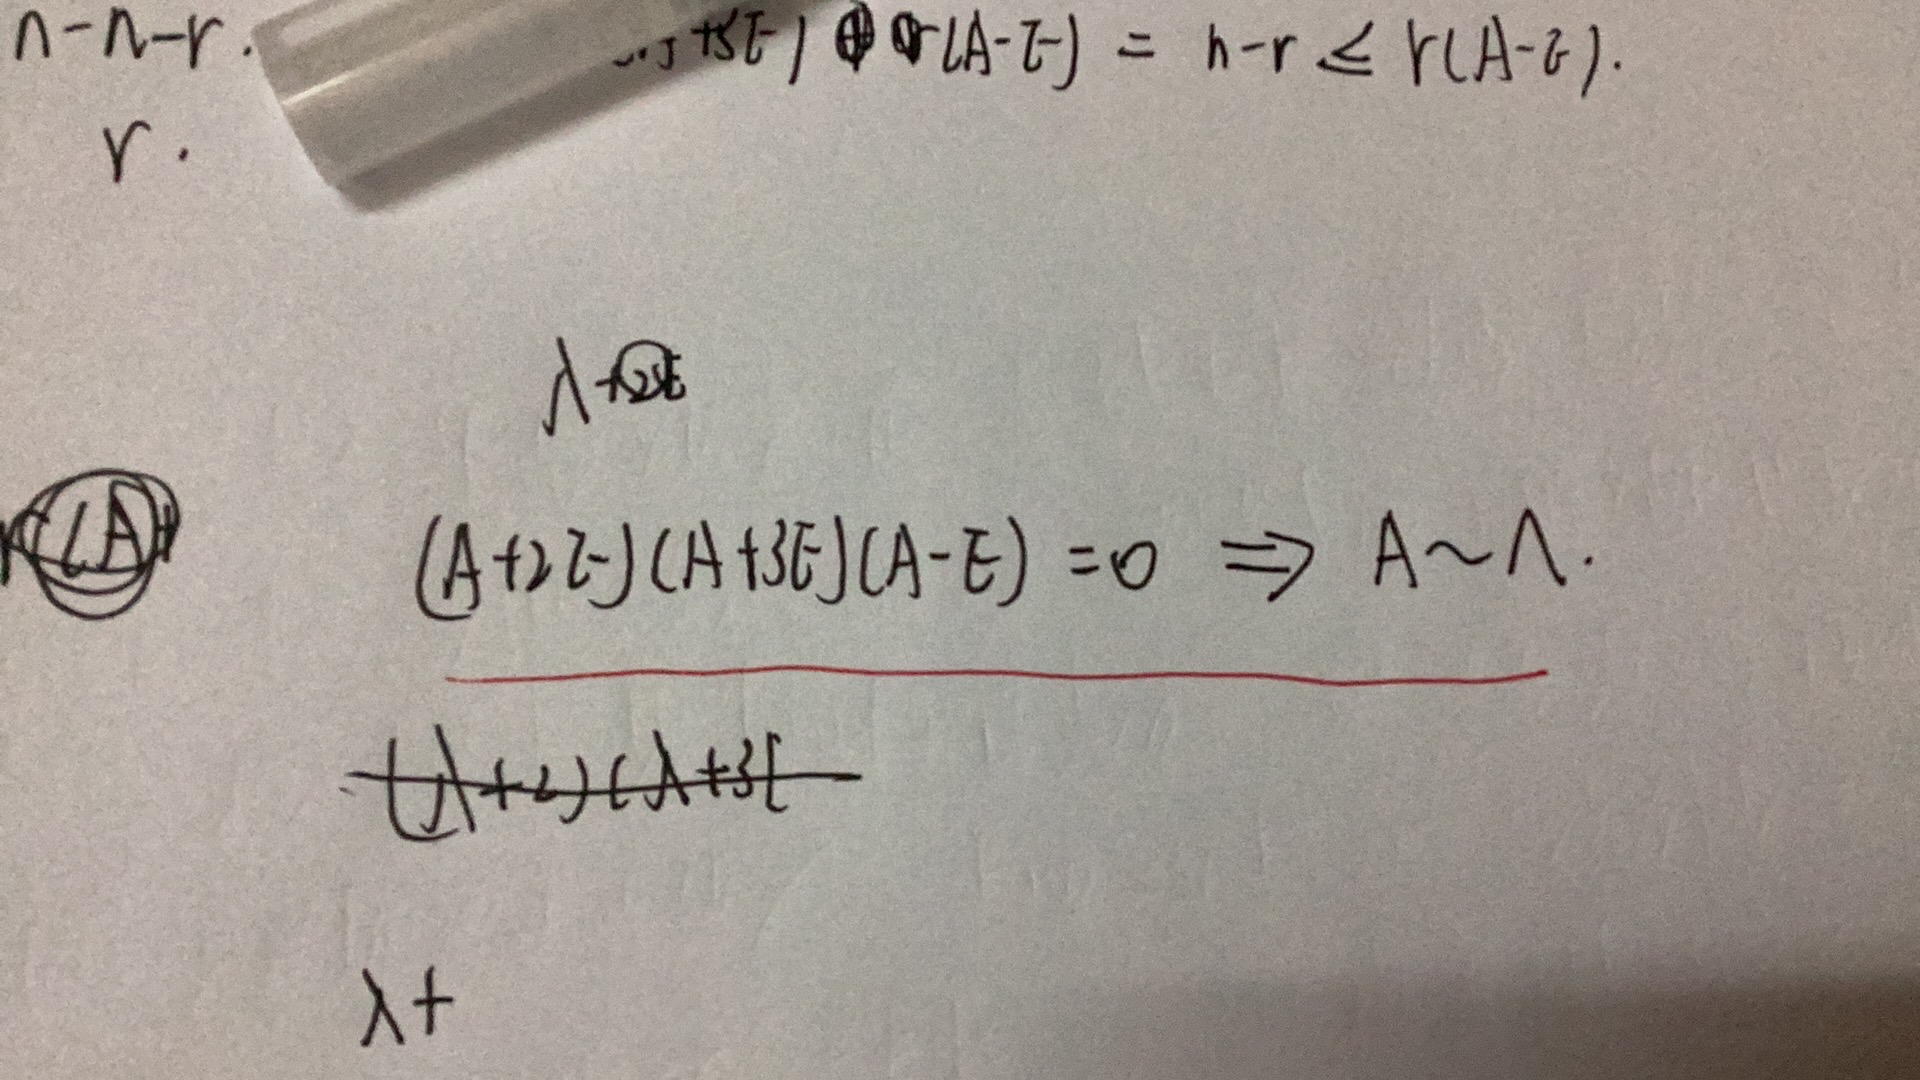 n-n-r. +3E) r(A-E) = n-r ≤ r(A-E).
r.
λ+2E
(A
(A+2E)(A+3E)(A-E) =0 ⇒ A~Λ.
(λ+2)(λ+3E
λ+